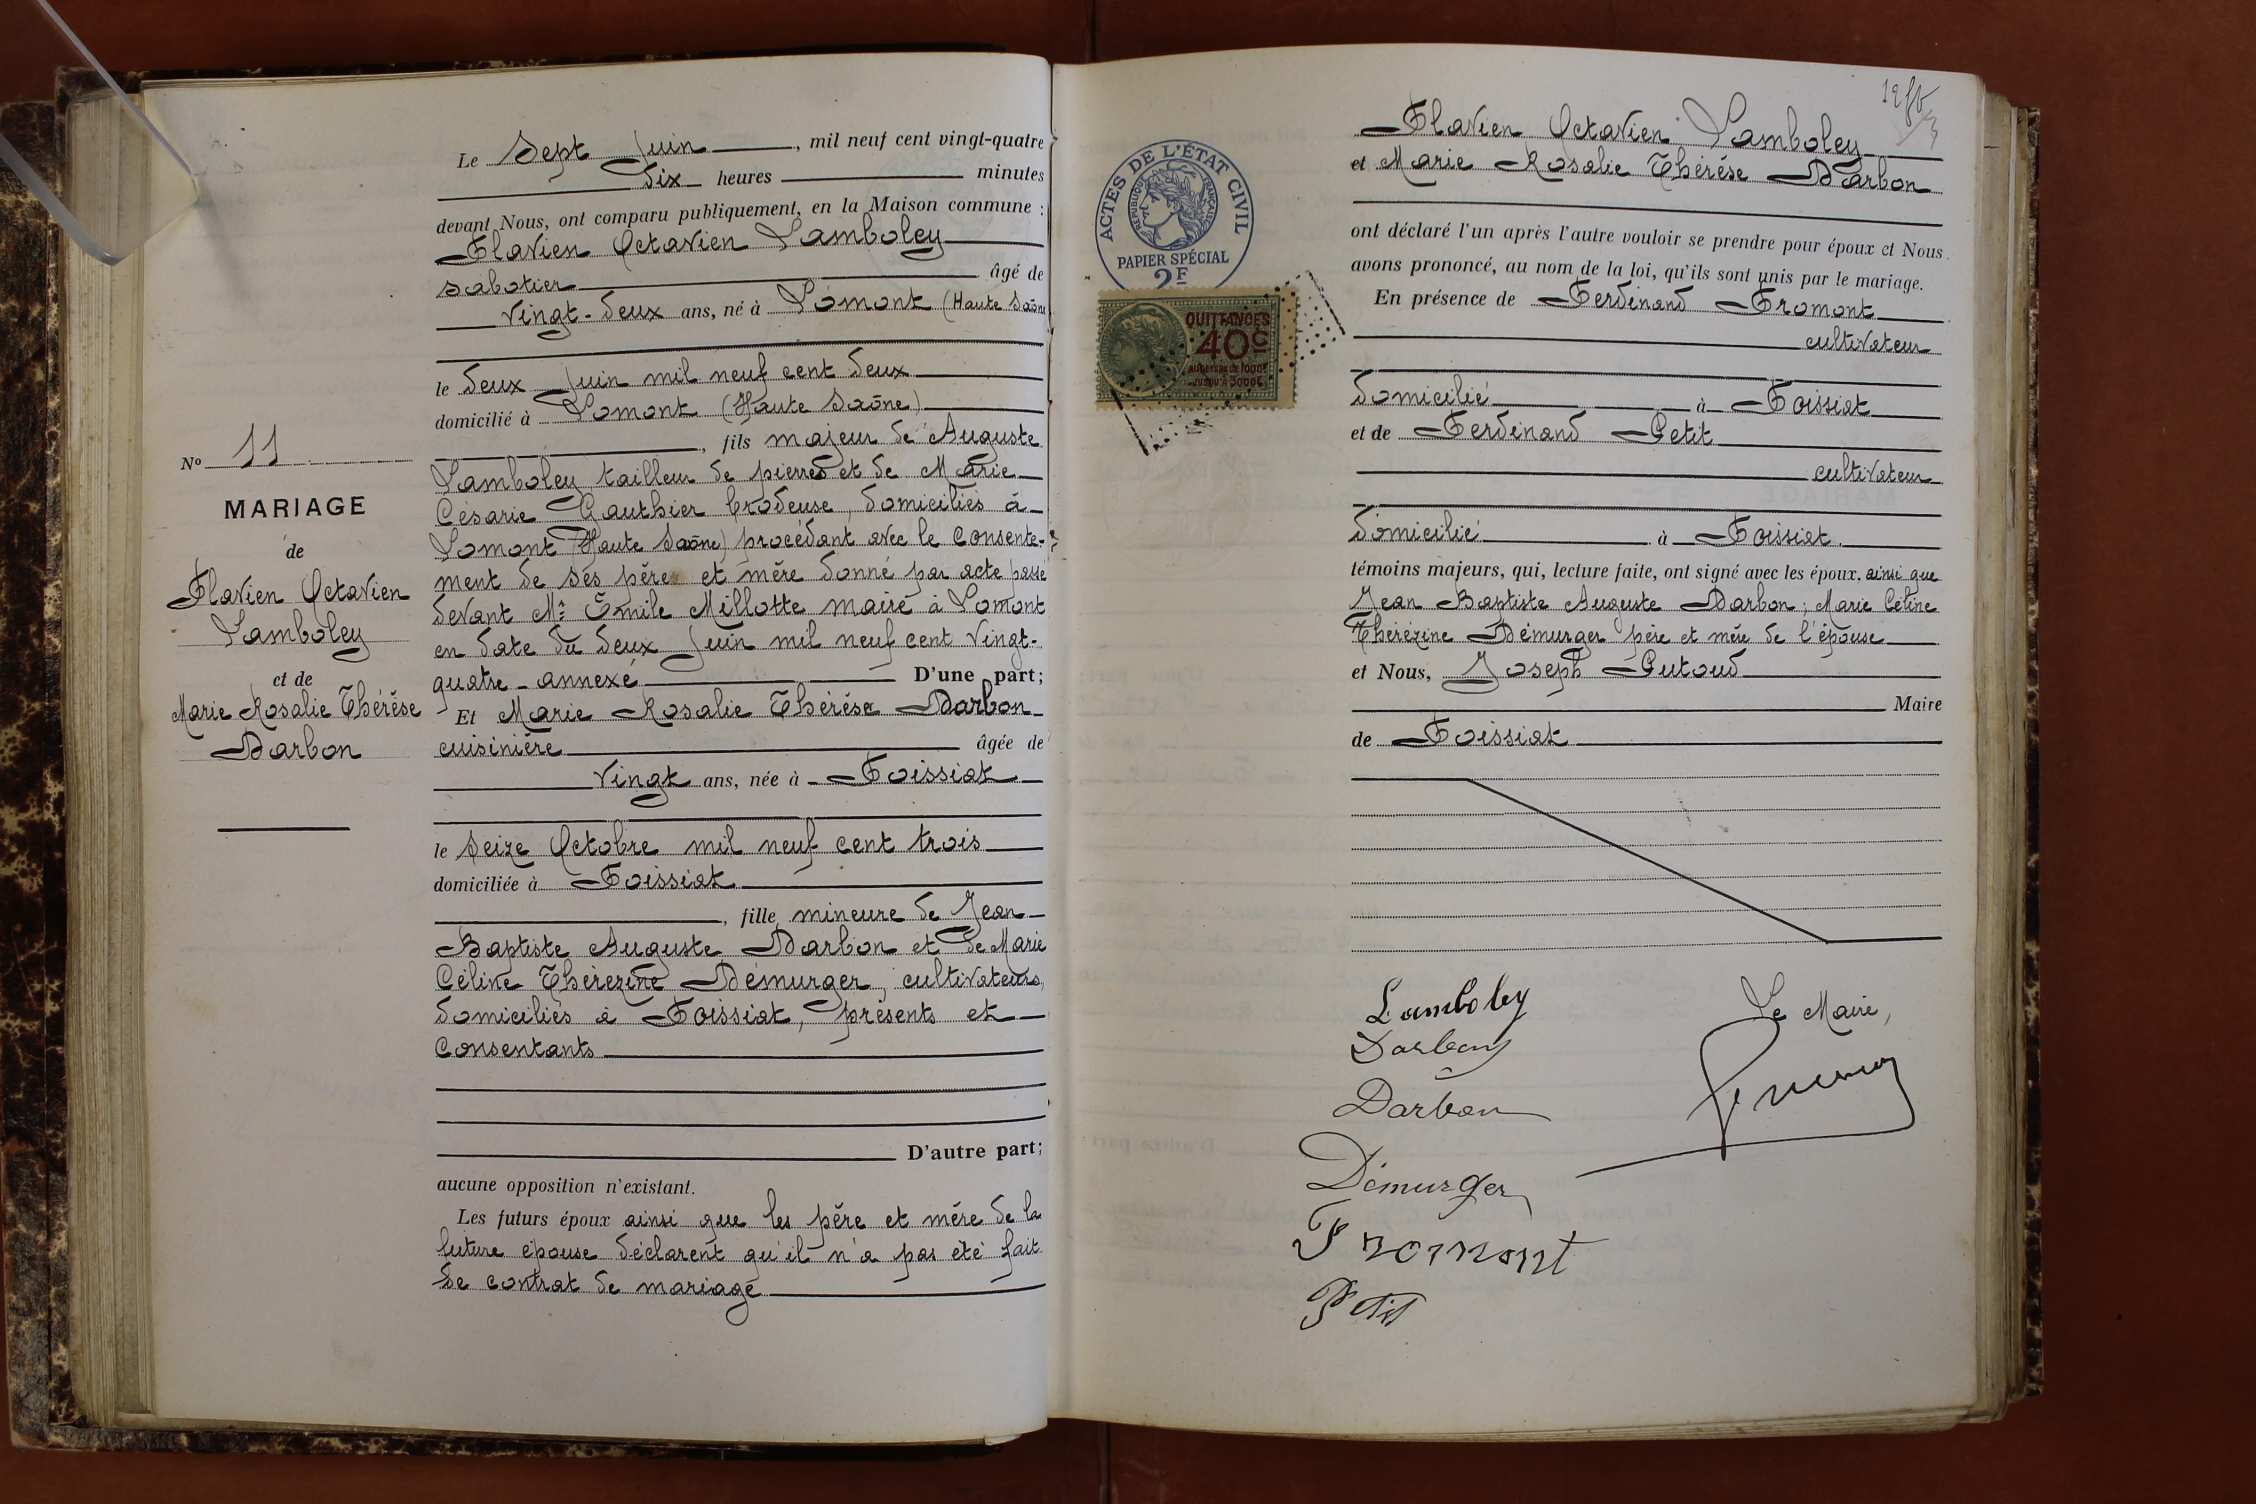 Le Sept Juin, mil neuf cent vingt-quatre
dix heures minutes
devant Nous, ont comparu publiquement, en la Maison commune :
Flavien Octavien Lamboley
sabotier âgé de
vingt-deux ans, né à Lomont (Haute Saône
le deux Juin mil neuf cent deux
domicilié à Lomont (Haute Saône)
, fils majeur de Auguste
Lamboley tailleur de pierres et de Marie
Césarie Gauthier brodeuse, domiciliés à
Lomont (Haute Saône) procédant avec le consente-
ment de ses père et mère donné par acte passé
devant Mr Emile Millotte maire à Lomont
en date du deux Juin mil neuf cent vingt-
quatre annexé D'une part;
Et Marie Rosalie Thérèse Darbon
cuisinière âgée de
vingt ans, née à Foissiat
le seize Octobre mil neuf cent trois
domiciliée à Foissiat
, fille mineure de Jean
Baptiste Auguste Darbon et de Marie
Céline Thérézine Démurger, cultivateurs,
domiciliés à Foissiat, présents et
consentants
D'autre part;
aucune opposition n'existant.
Les futurs époux ainsi que les père et mère de la
future épouse déclarent qu'il n'a pas été fait
de contrat de mariage
No 11
MARIAGE
de
Flavien Octavien
Lamboley
et de
Marie Rosalie Thérèse
Darbon
ACTES DE L'ÉTAT CIVIL
RÉPUBLIQUE FRANÇAISE
PAPIER SPÉCIAL
2F
QUITTANCES
40c
Flavien Octavien Lamboley
et Marie Rosalie Thérèse Darbon
ont déclaré l'un après l'autre vouloir se prendre pour époux et Nous
avons prononcé, au nom de la loi, qu'ils sont unis par le mariage.
En présence de Ferdinand Fromont
cultivateur
domicilié à Foissiat
et de Ferdinand Petit
cultivateur
domicilié à Foissiat
témoins majeurs, qui, lecture faite, ont signé avec les époux, ainsi que
Jean Baptiste Auguste Darbon; Marie Céline
Thérézine Démurger père et mère de l'épouse
et Nous, Joseph Putoud
Maire
de Foissiat
Lamboley
Darbon
Darbon
Démurger
Fromont
Petit
Le Maire,